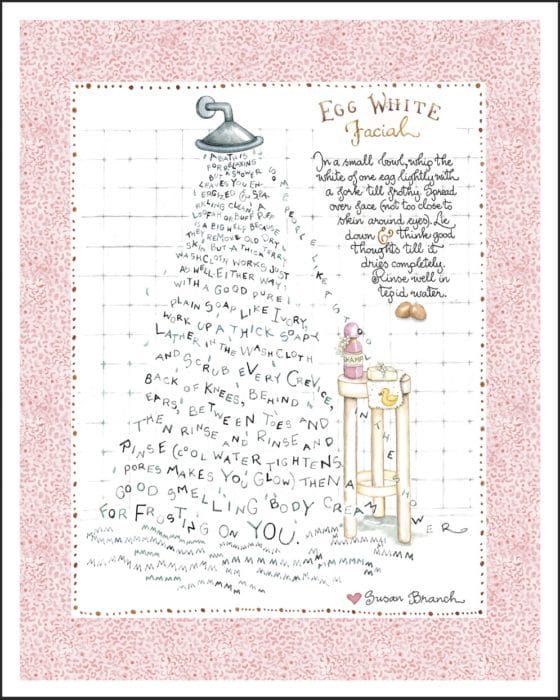 EGG WHITE
Facial
In a small bowl, whip the
white of one egg lightly with
a fork till frothy. Spread
over face (not too close to
skin around eyes). Lie
down & think good
thoughts till it
dries completely.
Rinse well in
tepid water.
A BATH IS
FOR RELAXING
BUT A SHOWER
LEAVES YOU EN-
ERGIZED & SPA-
RKLING CLEAN. A
LOOFAH OR BUFF PUFF
IS A BIG HELP BECAUSE
THEY REMOVE OLD DRY
SKIN. BUT A THICK TERRY
WASHCLOTH WORKS JUST
AS WELL. EITHER WAY,
WITH A GOOD PURE
PLAIN SOAP LIKE IVORY,
WORK UP A THICK SOAPY
LATHER IN THE WASH CLOTH
AND SCRUB EVERY CREVICE,
BACK OF KNEES, BEHIND
EARS, BETWEEN TOES AND
THEN RINSE AND RINSE AND
RINSE (COOL WATER TIGHTENS
PORES MAKES YOU GLOW) THEN A
GOOD SMELLING BODY CREAM
FOR FROSTING ON YOU.
SOME PEOPLE LIKE A STOOL IN THE SHOWER
SHAMP
Susan Branch